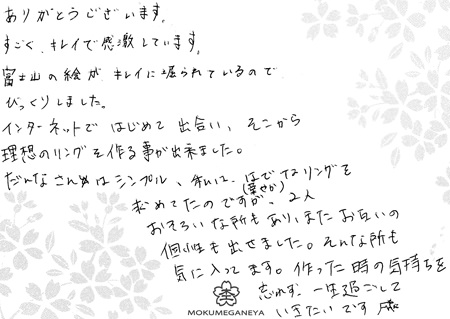 ありがとうございます。
すごく、キレイで感激しています。
富士山の絵が、キレイに掘られているので
びっくりしました。
インターネットで はじめて 出合い、そこから
理想のリングを作る事が出来ました。
だんなさんはシンプル、私に、はでなリングを
(華やか)
求めてたのですが、2人
おそろいな所もあり、またお互いの
個性も出せました。そんな所も
気に入ってます。作った時の気持ちを
忘れず、一生過ごして
いきたいです
MOKUMEGANEYA